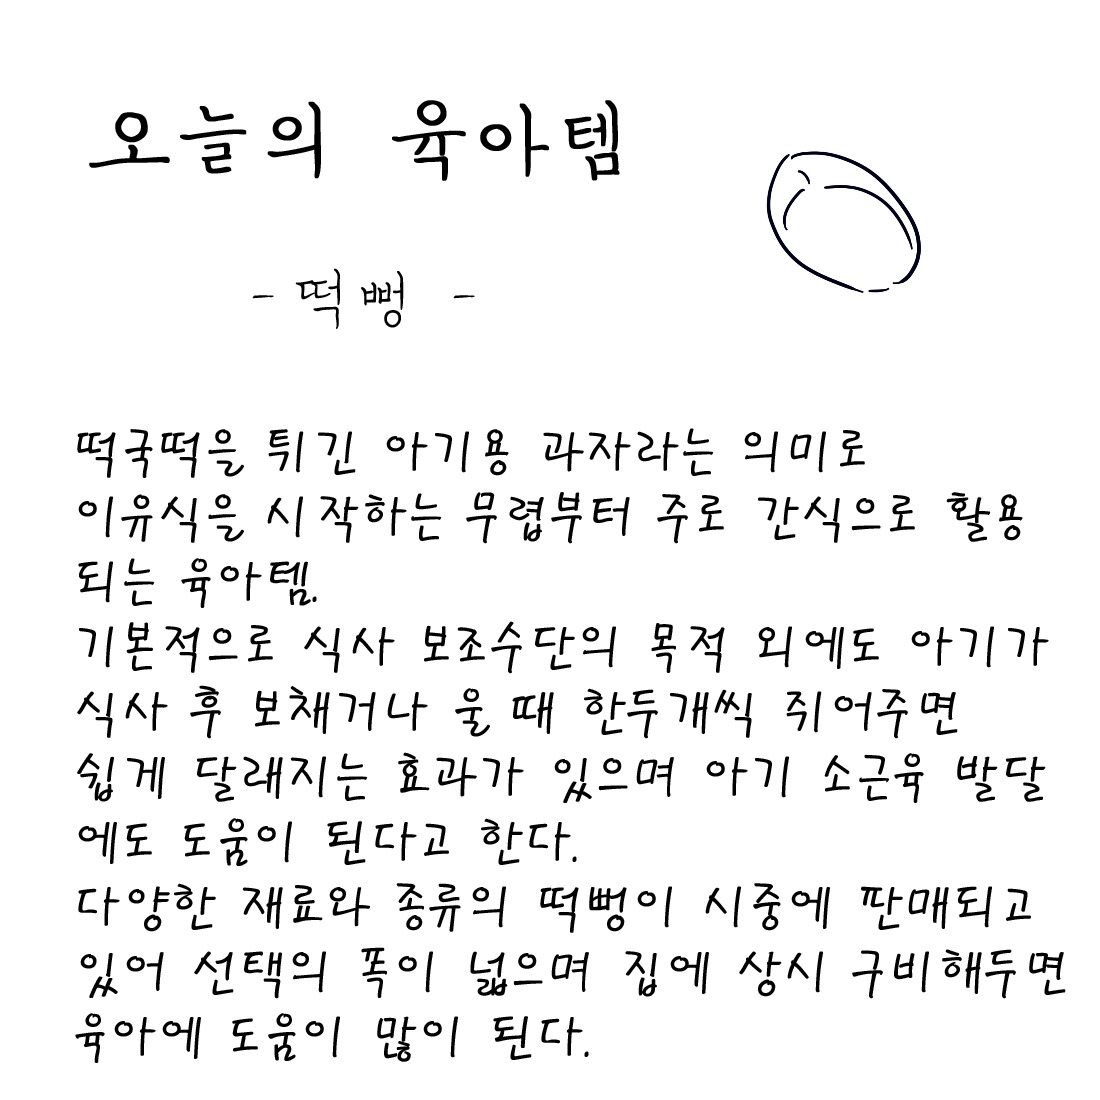 오늘의 육아템
- 떡뻥 -
떡국떡을 튀긴 아기용 과자라는 의미로
이유식을 시작하는 무렵부터 주로 간식으로 활용
되는 육아템.
기본적으로 식사 보조수단의 목적 외에도 아기가
식사 후 보채거나 울 때 한두개씩 쥐어주면
쉽게 달래지는 효과가 있으며 아기 소근육 발달
에도 도움이 된다고 한다.
다양한 재료와 종류의 떡뻥이 시중에 판매되고
있어 선택의 폭이 넓으며 집에 상시 구비해두면
육아에 도움이 많이 된다.